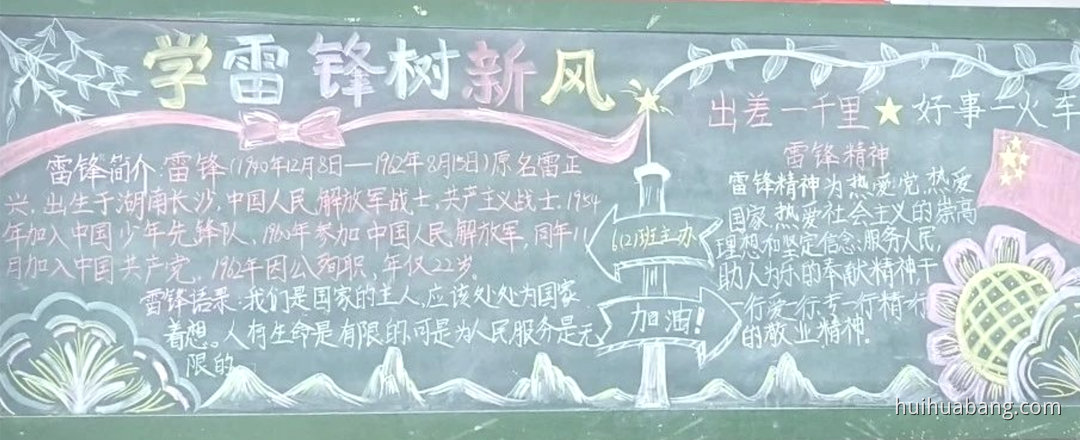 学雷锋树新风
雷锋简介:雷锋(1940年12月8日—1962年8月15日)原名雷正
兴,出生于湖南长沙,中国人民解放军战士,共产主义战士,1954
年加入中国少年先锋队,1960年参加中国人民解放军,同年11
月加入中国共产党。1962年因公殉职,年仅22岁。
雷锋语录:我们是国家的主人,应该处处为国家
着想。人的生命是有限的,可是为人民服务是无
限的
6(2)班主办
加油!
出差一千里★好事一火车
雷锋精神
雷锋精神为热爱党,热爱
国家,热爱社会主义的崇高
理想和坚定信念;服务人民,
助人为乐的奉献精神;干
一行爱一行,专一行精一行
的敬业精神。
huihuabang.com